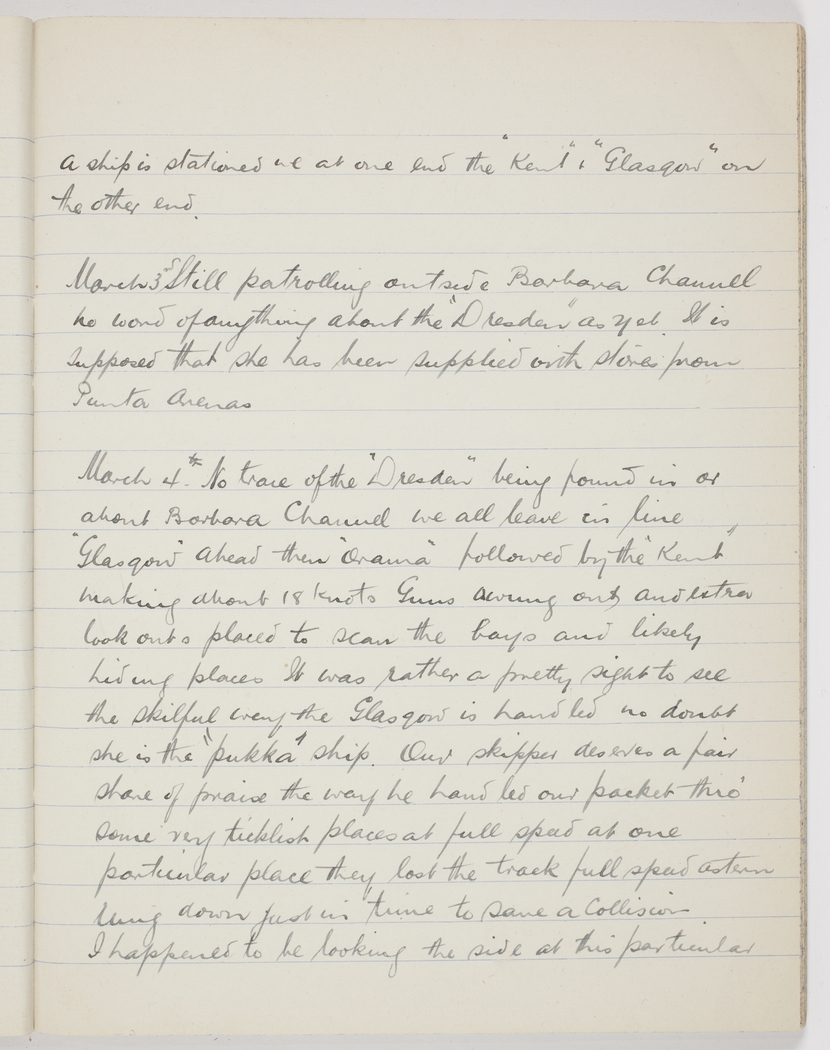 A ship is stationed we at one end the "Kent" & "Glasgow" on
the other end.
March 3rd Still patrolling outside Barbara Channel
no word of anything about the "Dresden" as yet. It is
supposed that she has been supplied with stores from
Punta Arenas
March 4th. No trace of the "Dresden" being found in or
about Barbara Channel we all leave in line
"Glasgow" ahead then "Orama" followed by the "Kent"
making about 18 Knots Guns swung out and extra
look outs placed to scan the bays and likely
hiding places It was rather a pretty sight to see
the skilful way the Glasgow is handled no doubt
she is the "pukka" ship. Our skipper deserves a fair
share of praise the way he handled our packet thro'
some very ticklish places at full speed at one
particular place they lost the track full speed astern
rung down just in time to save a Collision
I happened to be looking the side at this particular